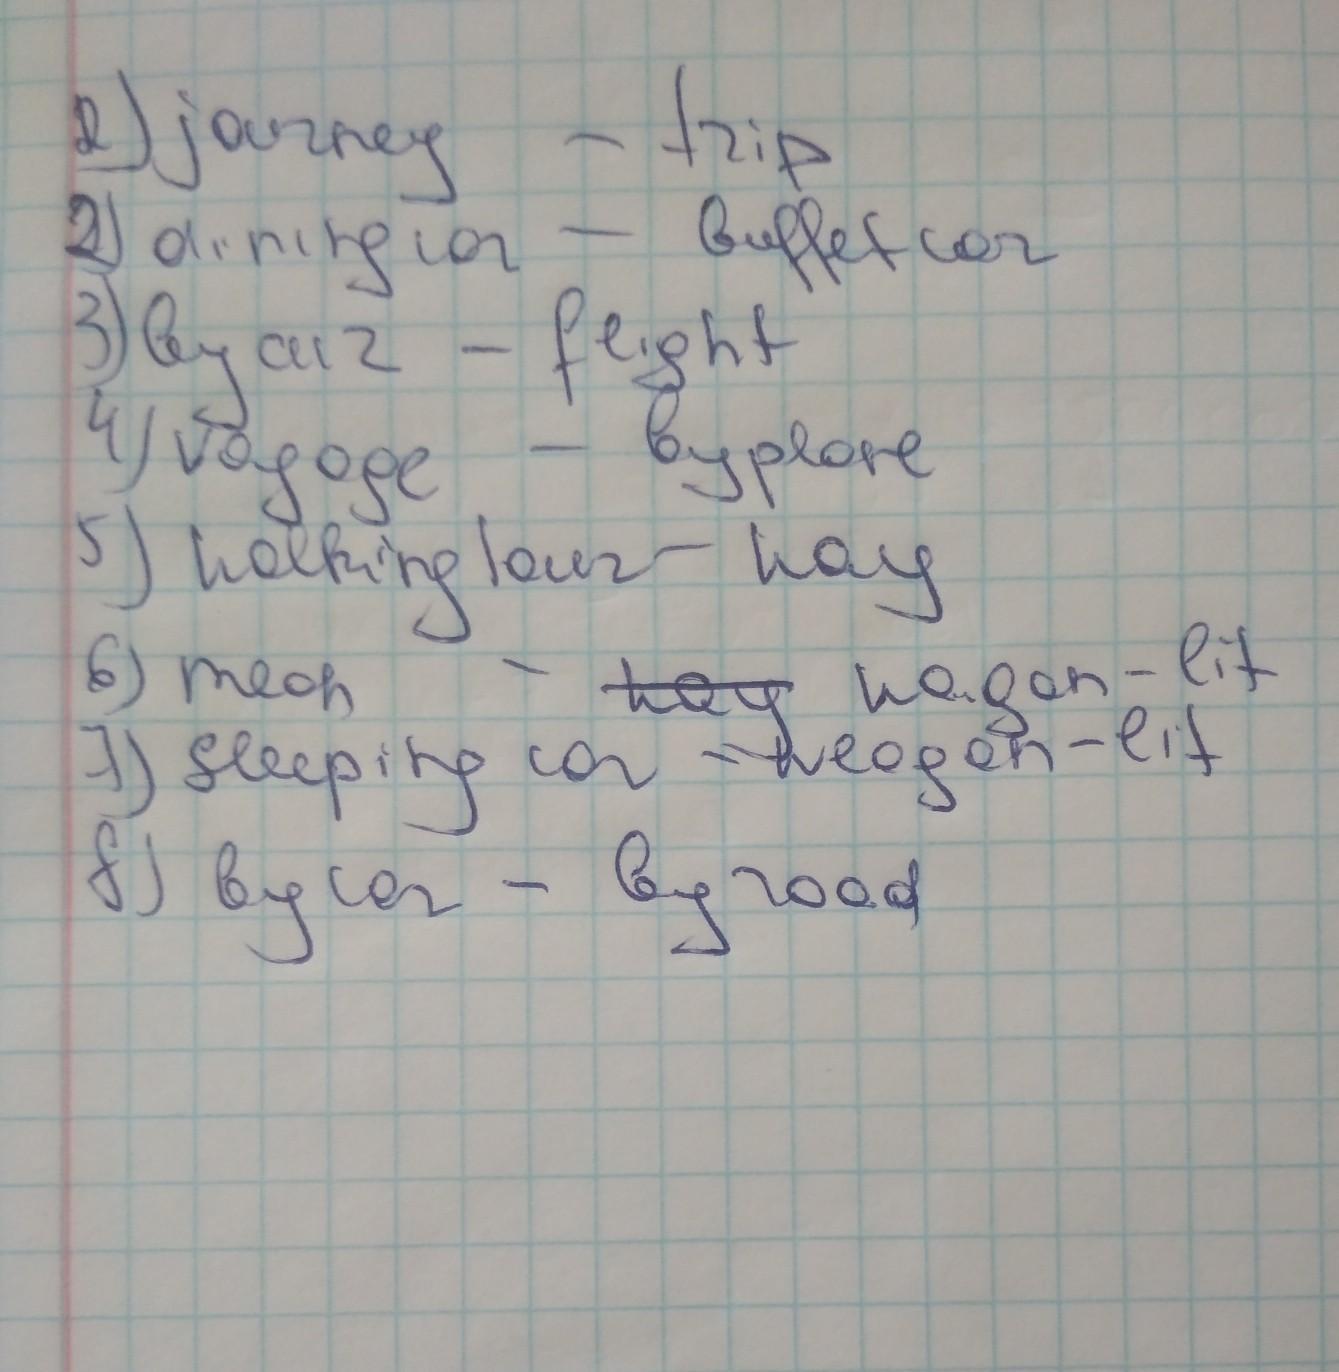 1) journey - trip
2) dining car - buffet car
3) by air - fleight
4) voyage - by plane
5) walking tour - way
6) mean - way wagon-lit
7) sleeping car - weagon-lit
8) by car - by road